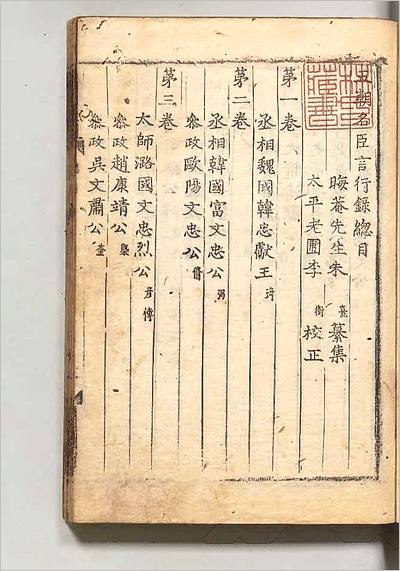 五朝名臣言行錄總目
晦菴先生朱 熹 纂集
太平老圃李 衡 校正
第一卷
丞相魏國韓忠獻王 琦
第二卷
丞相韓國富文忠公 弼
叅政歐陽文忠公 脩
第三卷
太師潞國文忠烈公 彦博
叅政趙康靖公 槩
叅政吳文肅公 奎